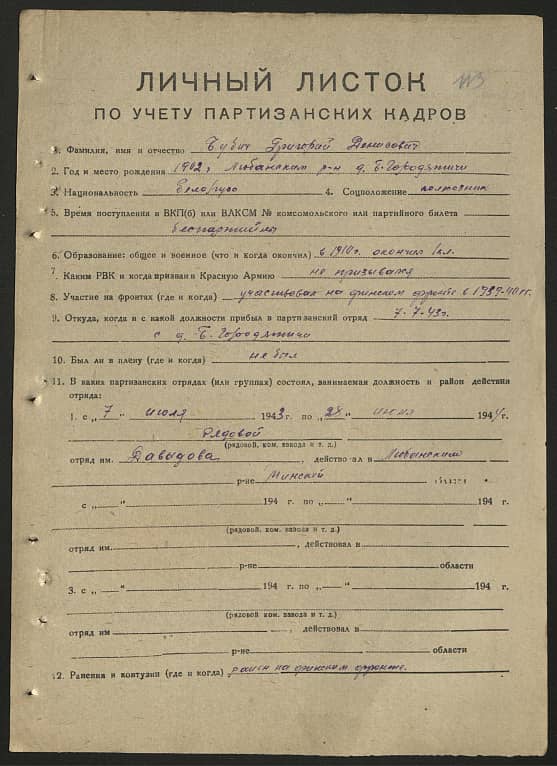 113
ЛИЧНЫЙ ЛИСТОК
ПО УЧЕТУ ПАРТИЗАНСКИХ КАДРОВ
1. Фамилия, имя и отчество Бубич Григорий Денисович
2. Год и место рождения 1902 г. Любанский р-н д. Б-Городятичи
3. Национальность Белорус 4. Соцположение колхозник
5. Время поступления в ВКП(б) или ВЛКСМ № комсомольского или партийного билета
беспартийный
6. Образование: общее и военное (что и когда окончил) в 1910 г. окончил 1 кл.
7. Каким РВК и когда призван в Красную Армию не призывался
8. Участие на фронтах (где и когда) участвовал на финском фронте в 1939-40 гг.
9. Откуда, когда и с какой должности прибыл в партизанский отряд 7-7-43 г.
с д. Б-Городятичи
10. Был ли в плену (где и когда) не был
11. В каких партизанских отрядах (или группах) состоял, занимаемая должность и район действия
отряда:
1. с „7“ июля 1943 г. по „28“ июня 1944 г.
Рядовой
(рядовой, ком. взвода и т. д.)
отряд им. Давыдова, действовал в Любанском
р-не Минской области
с „—“ 194 г. по „—“ 194 г.
(рядовой, ком. взвода и т. д.)
отряд им. , действовал в
р-не области
3. с „—“ 194 г. по „—“ 194 г.
(рядовой, ком. взвода и т. д.)
отряд им , действовал в
р-не области
12. Ранения и контузии (где и когда) ранен на финском фронте.